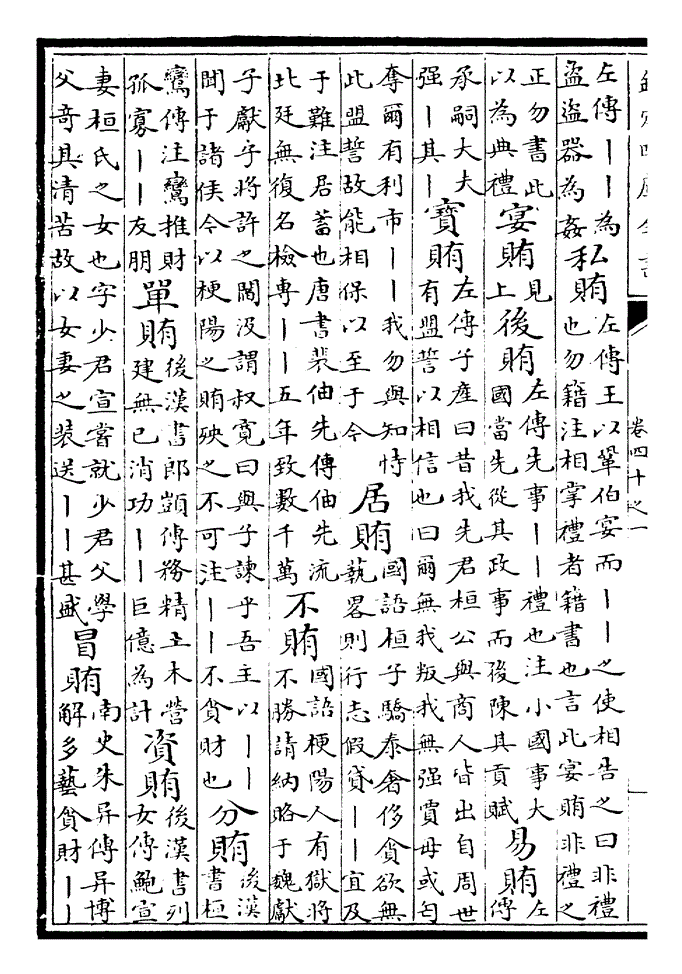 欽定四庫全書
卷四十之一
左傳丨丨為盜盜器為姦私賄左傳王以鞏伯宴而丨丨之使相告之曰非禮也勿籍注相掌禮者籍書也言此宴賄非禮之
正勿書此以為典禮宴賄見上後賄左傳先事丨丨禮也注小國事大國當先從其政事而後陳其貢賦易賄左傳
承嗣大夫强丨其丨寶賄左傳子產曰昔我先君桓公與商人皆出自周世有盟誓以相信也曰爾無我叛我無强賈毋或匄
奪爾有利市丨丨我勿與知恃此盟誓故能相保以至于今居賄國語桓子驕泰奢侈貪欲無藝畧則行志假貸丨丨宜及
于難注居蓄也唐書裴伷先傳伷先流北廷無復名檢專丨丨五年致數千萬不賄國語梗陽人有獄將不勝請納賂于魏獻
子獻子將許之閻没謂叔寛曰與子諫乎吾主以丨丨聞于諸侯今以梗陽之賄殃之不可注丨丨不貪財也分賄後漢書桓
鸞傳注鸞推財孤寡丨丨友朋單賄後漢書郎顗傳務精土木營建無已消功丨丨巨億為計資賄後漢書列女傳鮑宣
妻桓氏之女也字少君宣嘗就少君父學父竒其清苦故以女妻之装送丨丨甚盛冒賄南史朱异傳异博解多藝貪財丨丨